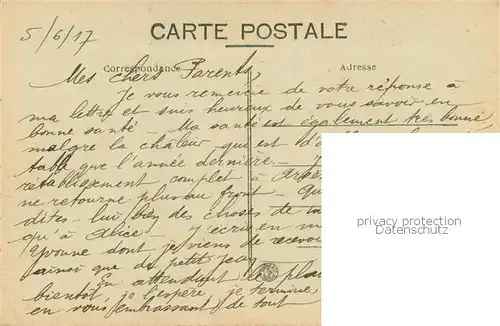 5/6/17
CARTE POSTALE
Correspondance
Adresse
Mes chers Parents,
Je vous remercie de votre réponse à
ma lettre et suis heureux de vous savoir en
bonne santé – Ma santé est également très bonne
malgré la chaleur qui est
table que l'année dernière –
rétablissement complet à
ne retourne plus au front –
dites-lui bien des choses de
qu'à Alice – J'écris en
Yvonne dont je viens de recevoir
ainsi que de petit Jean
En attendant le
bientôt, je l'espère, je termine,
en vous embrassant de tout
privacy protection
www.oldthing.de